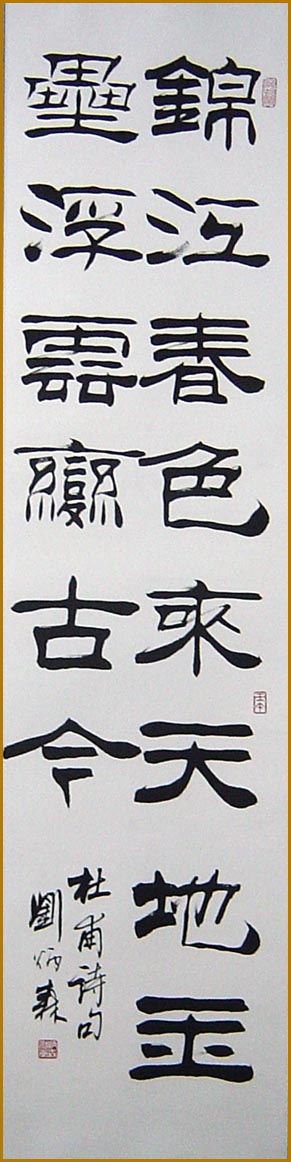 錦江春色来天地玉
壘浮雲變古今
杜甫詩句
劉炳森